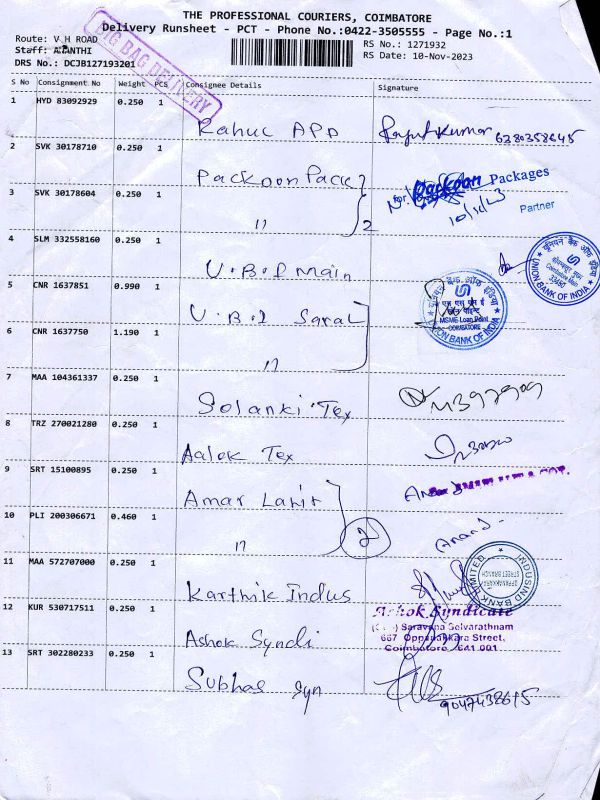 THE PROFESSIONAL COURIERS, COIMBATORE
Delivery Runsheet - PCT - Phone No.:0422-3505555 - Page No.:1
Route: V H ROAD
RS No.: 1271932
Staff: AZANTHI
RS Date: 10-Nov-2023
DRS No.: DCJB127193201
BIG BAG DELIVERY
S No Consignment No Weight PCS Consignee Details Signature
1 HYD 83092929 0.250 1
Rahul APP 6280358645
2 SVK 30178710 0.250 1
Packoon Pack
For Packoon Packages
Partner
10/11/23
3 SVK 30178604 0.250 1
" 2
4 SLM 332558160 0.250 1
U.B.I Main
UNION BANK OF INDIA
5 CNR 1637851 0.990 1
U.B.I Saral
MSME Loan Point
COIMBATORE
UNION BANK OF INDIA
6 CNR 1637750 1.190 1
"
7 MAA 104361337 0.250 1
Solanki Tex
8 TRZ 270021280 0.250 1
Aalok Tex
9 SRT 15100895 0.250 1
Amar Lahir
10 PLI 200306671 0.460 1
" 2 Anand
11 MAA 572707000 0.250 1
Karthik Indus
INDUSIND BANK LIMITED
OPPANAKKARA STREET BRANCH
12 KUR 530717511 0.250 1
Ashok Syndi
Ashok Syndicate
Saravana Selvarathnam
667 Oppanakkara Street,
Coimbatore 641 001
13 SRT 302280233 0.250 1
Subhas Syn 9047438615